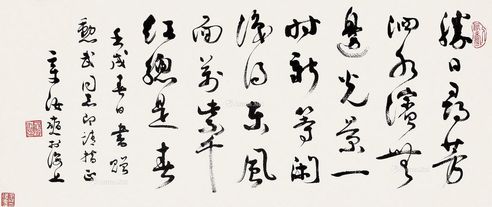 勝日尋芳
泗水濱無
邊光景一
時新等閑
識得東風
面萬紫千
紅總是春
壬戌春日書贈
武同志即請指正
於海上